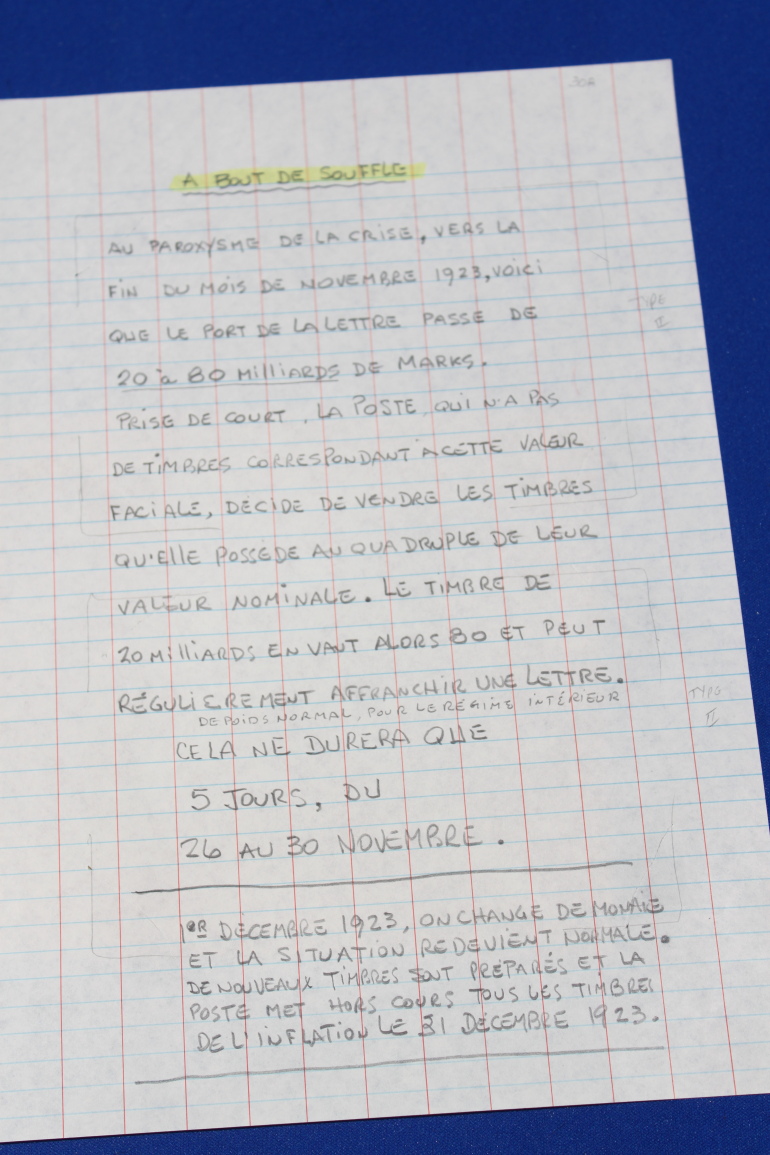 30A
A BOUT DE SOUFFLE
AU PAROXYSME DE LA CRISE, VERS LA
FIN DU MOIS DE NOVEMBRE 1923, VOICI
QUE LE PORT DE LA LETTRE PASSE DE
20 à 80 MILLIARDS DE MARKS.
PRISE DE COURT, LA POSTE, QUI N'A PAS
DE TIMBRES CORRESPONDANT A CETTE VALEUR
FACIALE, DÉCIDE DE VENDRE LES TIMBRES
QU'ELLE POSSÈDE AU QUADRUPLE DE LEUR
VALEUR NOMINALE. LE TIMBRE DE
20 MILLIARDS EN VAUT ALORS 80 ET PEUT
RÉGULIEREMENT AFFRANCHIR UNE LETTRE.
DE POIDS NORMAL, POUR LE RÉGIME INTÉRIEUR
CELA NE DURERA QUE
5 JOURS, DU
26 AU 30 NOVEMBRE.
1ER DÉCEMBRE 1923, ON CHANGE DE MONAIE
ET LA SITUATION REDEVIENT NORMALE.
DE NOUVEAUX TIMBRES SONT PRÉPARÉS ET LA
POSTE MET HORS COURS TOUS LES TIMBRES
DE L'INFLATION LE 31 DÉCEMBRE 1923.
TYPE
II
TYPE
II